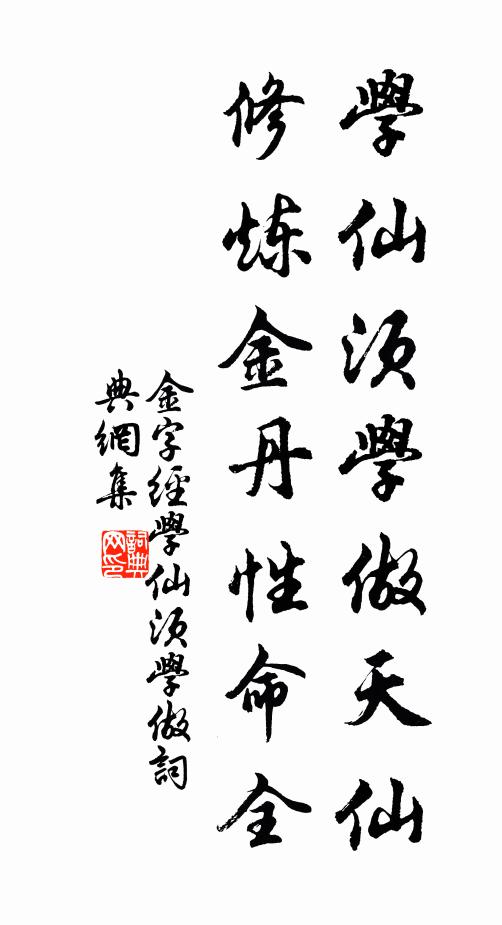 學仙須學做天仙
修炼金丹性命全
金字經學仙須學做詞
典網集
詞典
网印